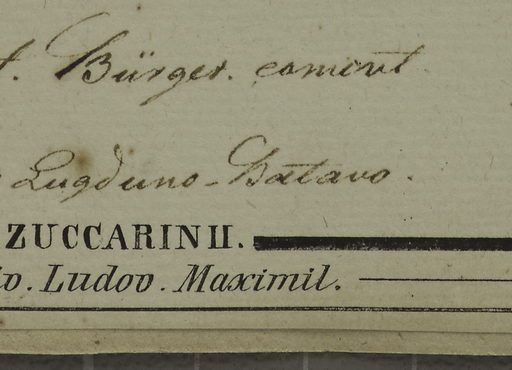 t. Bürger. comont
Lugduno-Batavo.
ZUCCARINII.
iv. Ludov. Maximil.